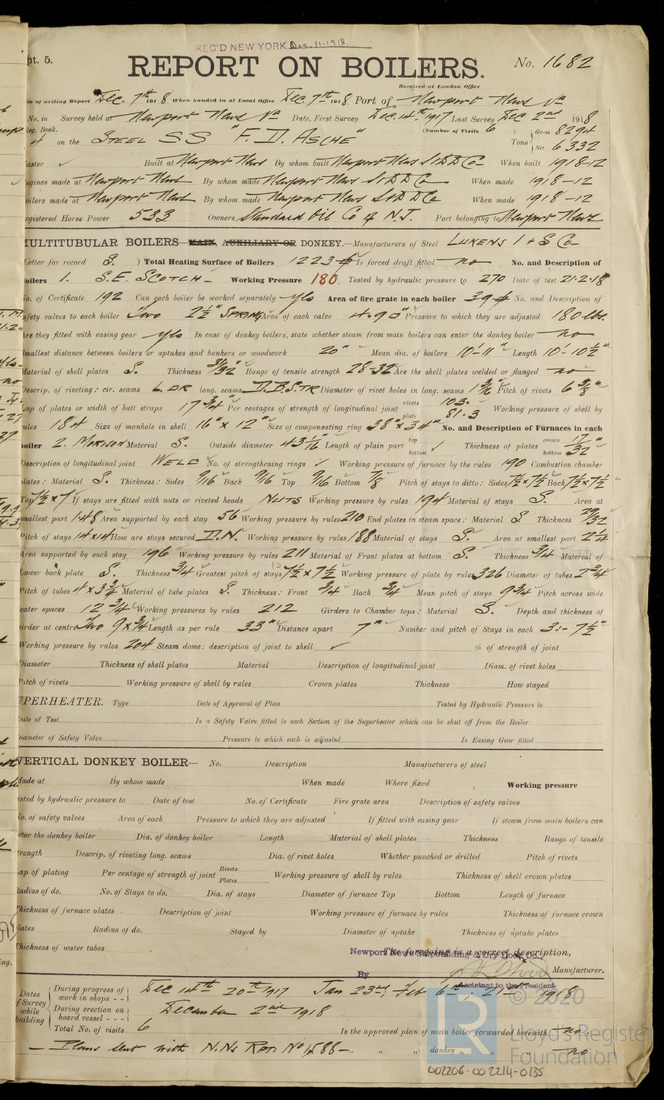 pt. 5.
REC'D NEW YORK Dec. 11-1918
REPORT ON BOILERS.
No. 1682
Received at London Office
of writing Report Dec. 7th 1918 When handed in at Local Office Dec 7th 1918 Port of Newport News Va
No. in Survey held at Newport News Va Date, First Survey Dec. 14th 1917 Last Survey Dec 2nd 1918
Reg. Book. (Number of Visits 6
on the Steel SS "F. D. Asche" Tons Gross 8294
Net 6332
Master ✓ Built at Newport News By whom built Newport News S & D D Co When built 1918-12
Engines made at Newport News By whom made Newport News S & D D Co When made 1918-12
Boilers made at Newport News By whom made Newport News S & D D Co When made 1918-12
Registered Horse Power 533 Owners Standard Oil Co of N.J. Port belonging to Newport News
MULTITUBULAR BOILERS MAIN, AUXILIARY OR DONKEY.—Manufacturers of Steel Lukens I & S Co
Letter for record S. ) Total Heating Surface of Boilers 1223 Is forced draft fitted no No. and Description of
Boilers 1. S.E. Scotch Working Pressure 180 Tested by hydraulic pressure to 270 Date of test 21-2-18
No. of Certificate 192 Can each boiler be worked separately yes Area of fire grate in each boiler 39 No. and Description of
safety valves to each boiler Two 2½" Spring Area of each valve 4.90" Pressure to which they are adjusted 180 lbs.
Are they fitted with easing gear yes In case of donkey boilers, state whether steam from main boilers can enter the donkey boiler no
Smallest distance between boilers or uptakes and bunkers or woodwork 20" Mean dia. of boilers 10'-11" Length 10'-10½"
Material of shell plates S. Thickness Range of tensile strength 28-32 Are the shell plates welded or flanged no
Descrip. of riveting: cir. seams L D R long. seams D.B.S.TR Diameter of rivet holes in long. seams Pitch of rivets
Lap of plates or width of butt straps 17¾" Per centages of strength of longitudinal joint rivets 103. plate 81.3 Working pressure of shell by
rules 184 Size of manhole in shell 16" x 12" Size of compensating ring 38" x 34" No. and Description of Furnaces in each
boiler 2. Morison Material S. Outside diameter Length of plain part top bottom ✓ Thickness of plates crown bottom 17/32"
Description of longitudinal joint Weld No. of strengthening rings ✓ Working pressure of furnace by the rules 190 Combustion chamber
plates: Material S. Thickness: Sides 9/16 Back 9/16 Top 9/16 Bottom 7/8 Pitch of stays to ditto: Sides 7½x7½ Back 7½x7½
Top 7½ x 7 If stays are fitted with nuts or riveted heads Nuts Working pressure by rules 194 Material of stays S. Area at
smallest part 1.48 Area supported by each stay 56 Working pressure by rules 210 End plates in steam space: Material S Thickness 29/32
Pitch of stays 14x14 How are stays secured D.N. Working pressure by rules 188 Material of stays S. Area at smallest part
Area supported by each stay 196 Working pressure by rules 211 Material of Front plates at bottom S. Thickness ¾ Material of
Lower back plate S. Thickness ¾ Greatest pitch of stays 7½ x 7½ Working pressure of plate by rules 326 Diameter of tubes 2¾
Pitch of tubes 4 x 3¾ Material of tube plates S. Thickness: Front ¾ Back ¾ Mean pitch of stays 9¾ Pitch across wide
water spaces 12¾ Working pressures by rules 212 Girders to Chamber tops: Material S. Depth and thickness of
girder at centre Two 9 x ¾ Length as per rule 33" Distance apart 7" Number and pitch of Stays in each 3:- 7½"
Working pressure by rules 204 Steam dome: description of joint to shell ✓ % of strength of joint
Diameter Thickness of shell plates Material Description of longitudinal joint Diam. of rivet holes
Pitch of rivets Working pressure of shell by rules Crown plates Thickness How stayed
UPERHEATER. Type Date of Approval of Plan Tested by Hydraulic Pressure to
Date of Test Is a Safety Valve fitted to each Section of the Superheater which can be shut off from the Boiler
Diameter of Safety Valve Pressure to which each is adjusted Is Easing Gear fitted
VERTICAL DONKEY BOILER— No. Description Manufacturers of steel
Made at By whom made When made Where fixed Working pressure
tested by hydraulic pressure to Date of test No. of Certificate Fire grate area Description of safety valves
No. of safety valves Area of each Pressure to which they are adjusted If fitted with easing gear If steam from main boilers can
enter the donkey boiler Dia. of donkey boiler Length Material of shell plates Thickness Range of tensile
strength Descrip. of riveting long. seams Dia. of rivet holes Whether punched or drilled Pitch of rivets
Lap of plating Per centage of strength of joint Rivets Plates Working pressure of shell by rules Thickness of shell crown plates
Radius of do. No. of Stays to do. Dia. of stays Diameter of furnace Top Bottom Length of furnace
Thickness of furnace plates Description of joint Working pressure of furnace by rules Thickness of furnace crown
plates Radius of do. Stayed by Diameter of uptake Thickness of uptake plates
Thickness of water tubes
The foregoing is a correct description,
Newport News Shipbuilding & Dry Dock Co.,
By Manufacturer.
Assistant to the President
Dates of Survey while building
During progress of work in shops - - Dec 14th 20th 1917 Jan 23rd, Feb 6th 21- 1918
During erection on board vessel - - - December 2nd 1918
Total No. of visits 6 Is the approved plan of main boiler forwarded herewith no
— Plans sent with N.Ns Rpt. No 1588 — " " " donkey " " no
© 2020
Lloyd's Register
Foundation
002206-002214-0135